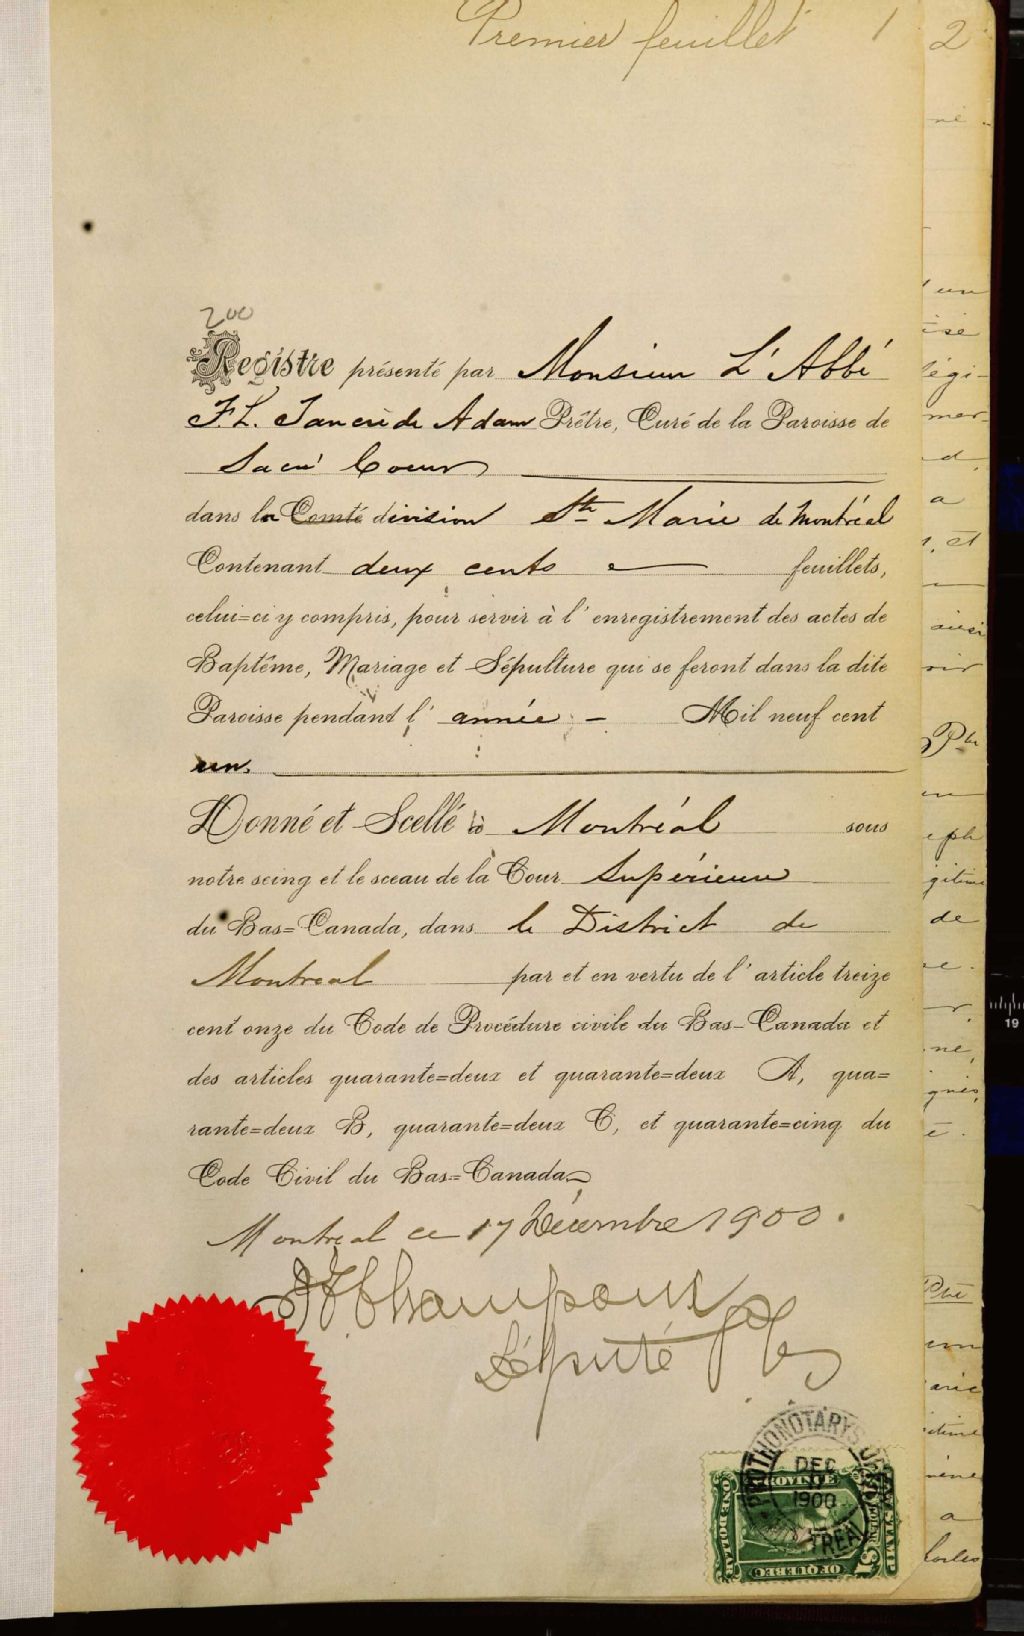 Premier feuillet 1 2
200
Registre présenté par Monsieur L'Abbé
F. L. Tancrède Adam Prêtre, Curé de la Paroisse de
Sacré Coeur
dans la Comté division Ste Marie de Montréal
Contenant deux cents feuillets,
celui=ci y compris, pour servir à l'enregistrement des actes de
Baptême, Mariage et Sépulture qui se feront dans la dite
Paroisse pendant l'année - Mil neuf cent
un.
Donné et Scellé à Montréal sous
notre seing et le sceau de la Cour Supérieure
du Bas=Canada, dans le District de
Montreal par et en vertu de l'article treize
cent onze du Code de Procédure civile du Bas-Canada et
des articles quarante=deux et quarante=deux A, qua=
rante=deux B, quarante=deux C, et quarante=cinq du
Code Civil du Bas=Canada
Montreal ce 17 Décembre 1900.
Champoux
Député
PROTHONOTARY'S
DEC
17
1900
TREAL
ONE DOLLAR
STAMP
$1
OF QUEBEC
19